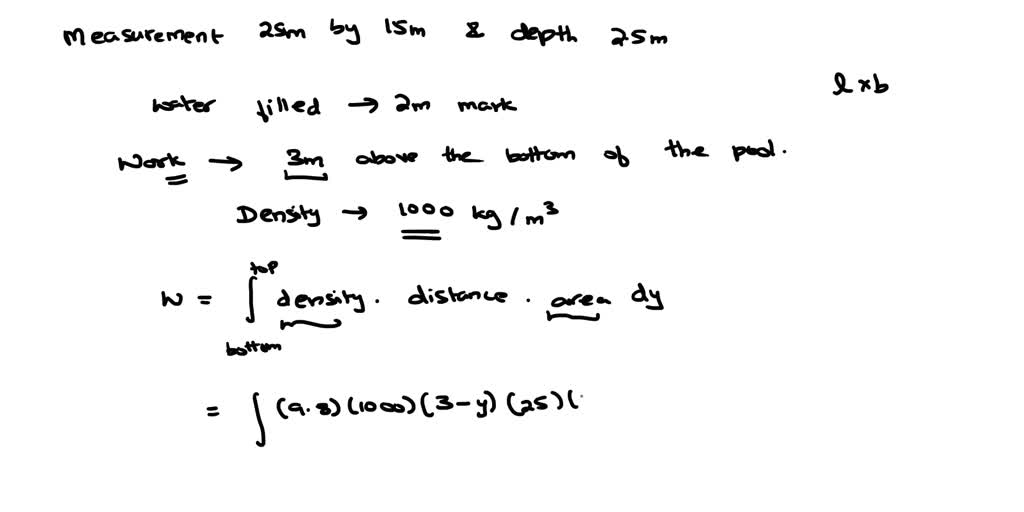 Measurement 25m by 15m & depth 25m
l × b
water filled → 2m mark
Work → 3m above the bottom of the pool.
Density → 1000 kg/m³
top
W = ∫ density . distance . area dy
bottom
= ∫ (9.8) (1000) (3-y) (25) (